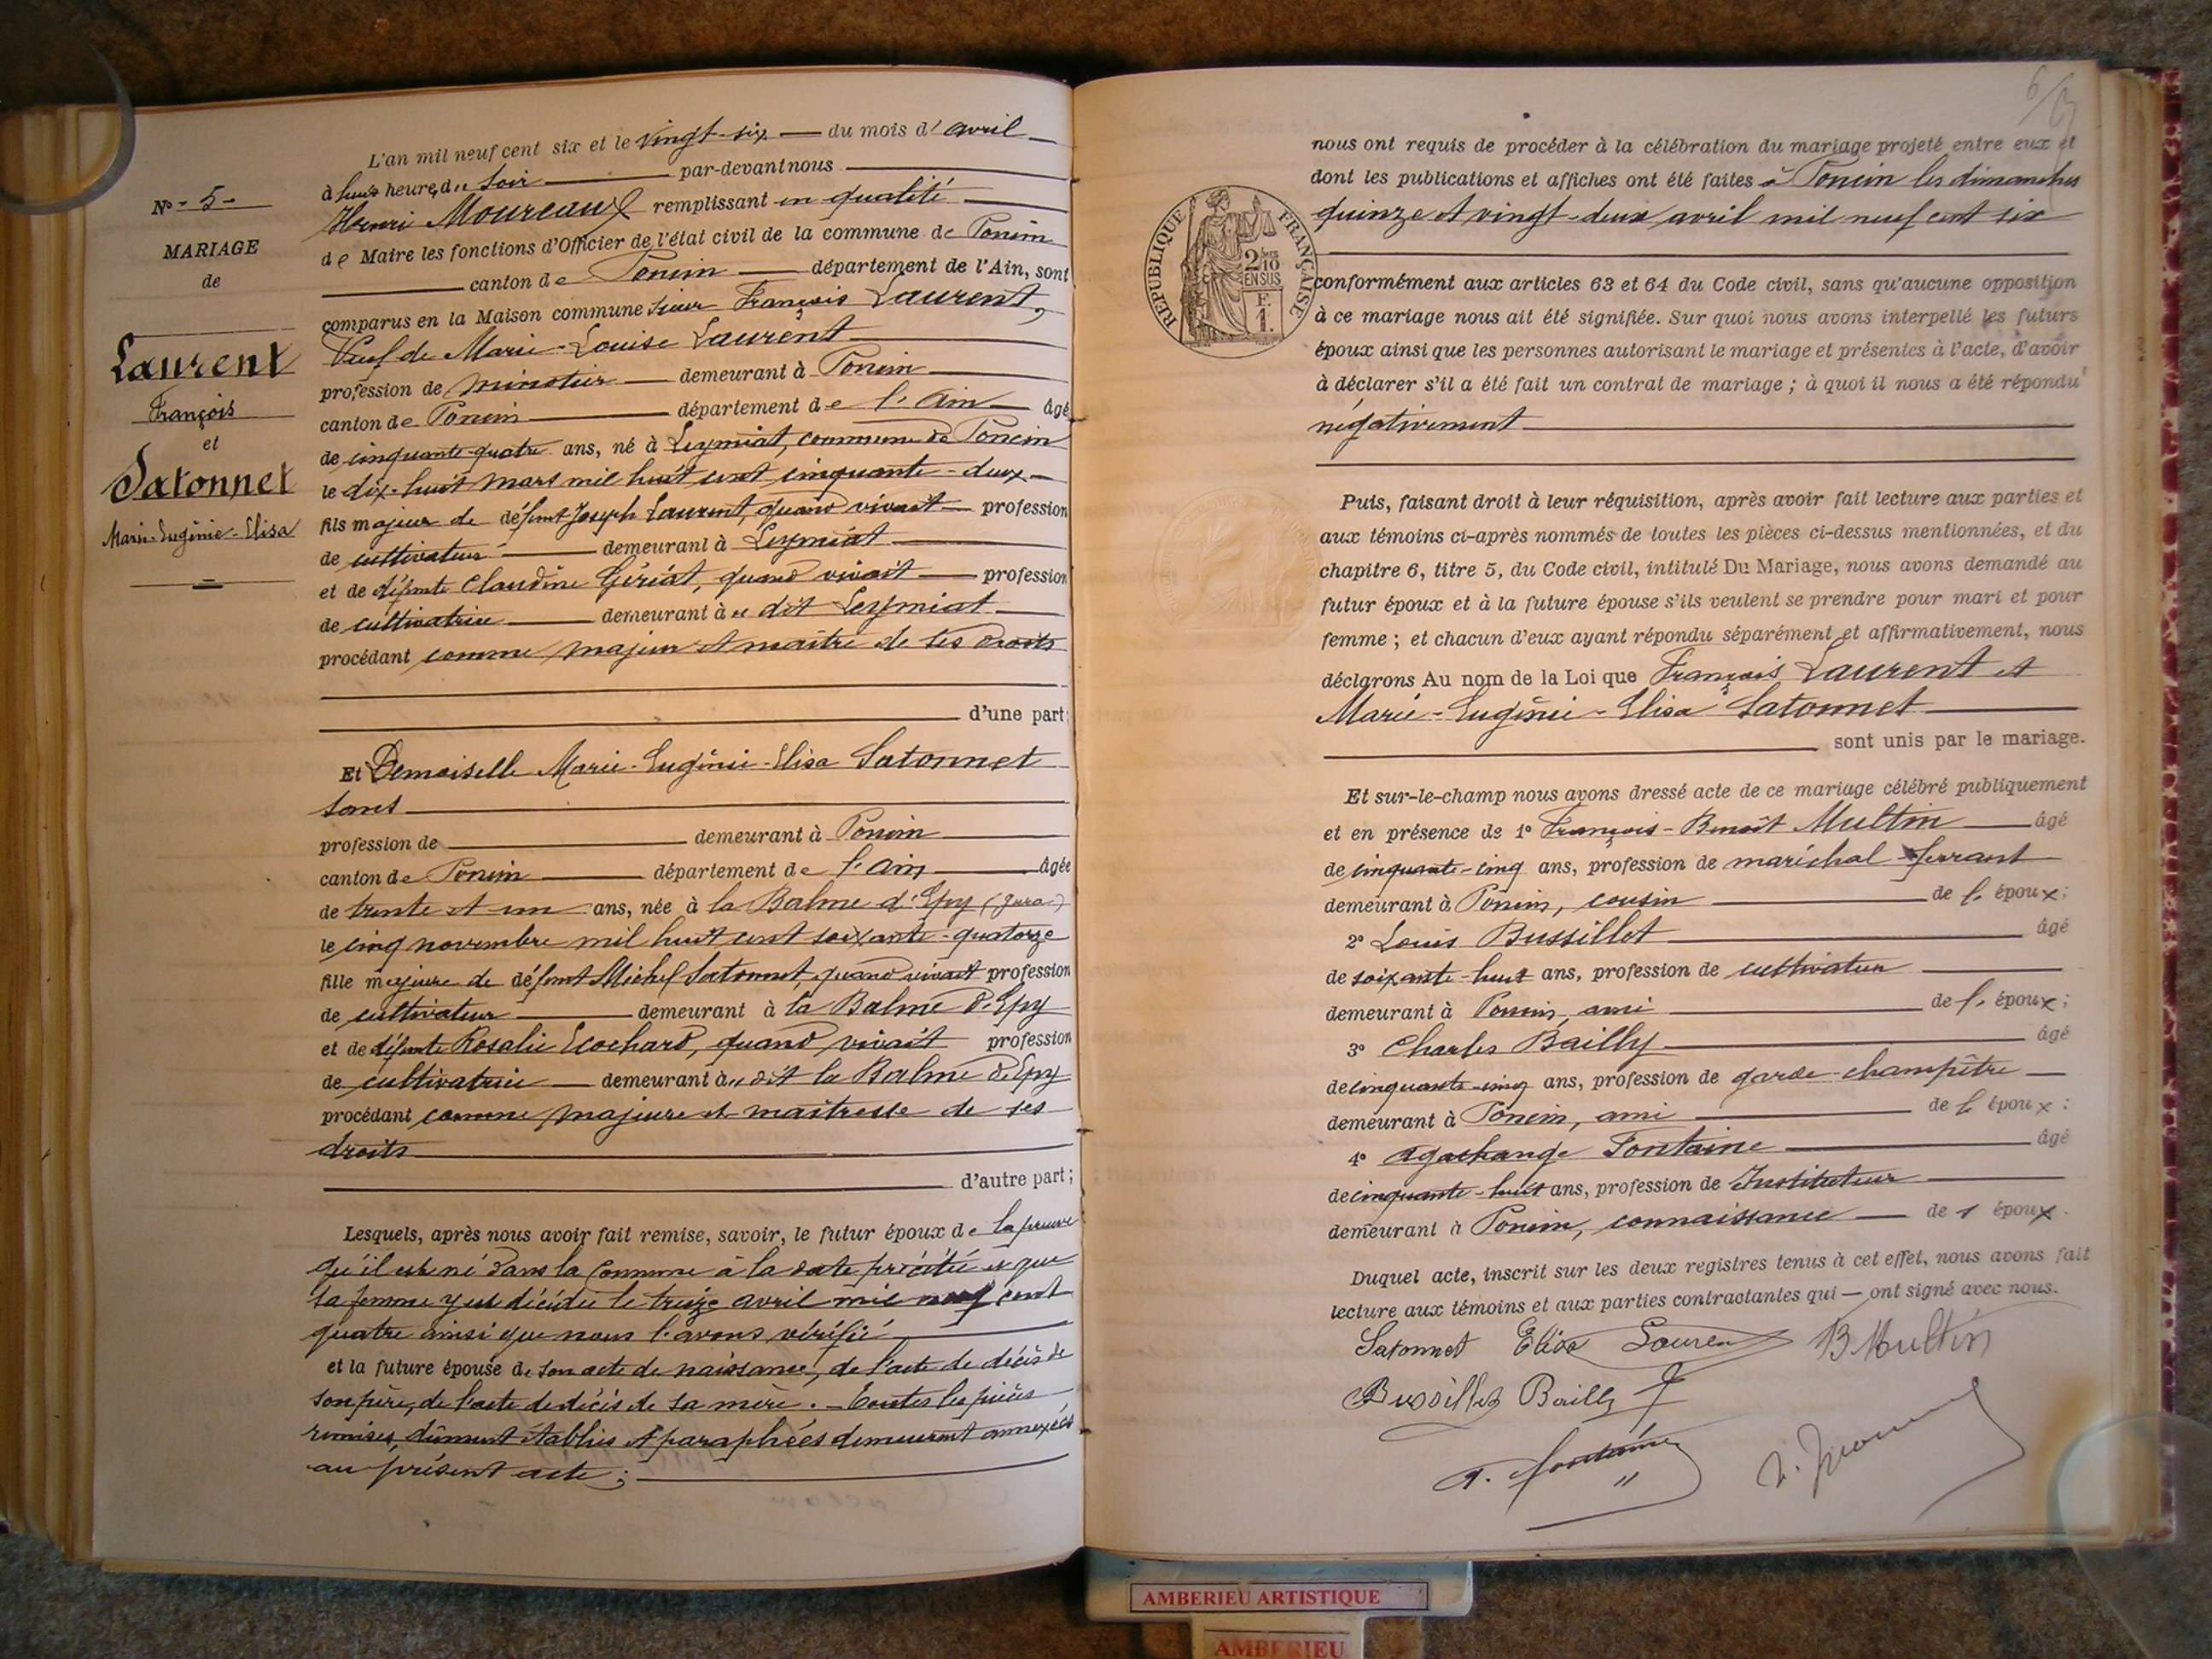 N° - 5 -
MARIAGE
de
Laurent
François
et
Satonnet
Marie-Eugénie-Elisa
L'an mil neuf cent six et le vingt-six du mois d'avril
à heures du soir par-devant nous
Henri Moureaux remplissant en qualité
de Maire les fonctions d'Officier de l'état civil de la commune de Poncin
canton de Poncin département de l'Ain, sont
comparus en la Maison commune sieur François Laurent,
Veuf de Marie-Louise Laurent
profession de minotier demeurant à Poncin
canton de Poncin département de l'Ain âgé
de cinquante-quatre ans, né à Leymiat, commune de Poncin
le dix-huit mars mil huit cent cinquante-deux
fils majeur de défunt Joseph Laurent, quand vivait profession
de cultivateur demeurant à Leymiat
et de défunte Claudine Gériat, quand vivait profession
de cultivatrice demeurant à u dit Leymiat
procédant comme majeur et maître de ses droits
d'une part;
Et Demoiselle Marie-Eugénie-Elisa Satonnet
sans
profession de demeurant à Poncin
canton de Poncin département de l'Ain âgée
de trente et un ans, née à la Balme d'Epy (Jura)
le cinq novembre mil huit cent soixante-quatorze
fille majeure de défunt Michel Satonnet, quand vivait profession
de cultivateur demeurant à la Balme d'Epy
et de défunte Rosalie Ecochard, quand vivait profession
de cultivatrice demeurant à u dit la Balme d'Epy
procédant comme majeure et maîtresse de ses
droits
d'autre part;
Lesquels, après nous avoir fait remise, savoir, le futur époux de la preuve
qu'il est né dans la commune à la date précitée et que
sa femme y est décédée le treize avril mil neuf cent
quatre ainsi que nous l'avons vérifié
et la future épouse de son acte de naissance, de l'acte de décès de
son père, de l'acte de décès de sa mère. - Toutes les pièces
remises, dûment établies et paraphées demeurent annexées
au présent acte;
6
nous ont requis de procéder à la célébration du mariage projeté entre eux et
dont les publications et affiches ont été faites à Poncin les dimanches
quinze et vingt-deux avril mil neuf cent six
REPUBLIQUE FRANÇAISE
2/10
EN SUS
F.
1.
conformément aux articles 63 et 64 du Code civil, sans qu'aucune opposition
à ce mariage nous ait été signifiée. Sur quoi nous avons interpellé les futurs
époux ainsi que les personnes autorisant le mariage et présentes à l'acte, d'avoir
à déclarer s'il a été fait un contrat de mariage ; à quoi il nous a été répondu
négativement
Puis, faisant droit à leur réquisition, après avoir fait lecture aux parties et
aux témoins ci-après nommés de toutes les pièces ci-dessus mentionnées, et du
chapitre 6, titre 5, du Code civil, intitulé Du Mariage, nous avons demandé au
futur époux et à la future épouse s'ils veulent se prendre pour mari et pour
femme ; et chacun d'eux ayant répondu séparément et affirmativement, nous
déclarons Au nom de la Loi que François Laurent et
Marie-Eugénie-Elisa Satonnet
sont unis par le mariage.
Et sur-le-champ nous avons dressé acte de ce mariage célébré publiquement
et en présence de 1° François-Benoît Multin âgé
de cinquante-cinq ans, profession de maréchal-ferrant
demeurant à Poncin, cousin de l'époux;
2° Louis Bussillet âgé
de soixante-huit ans, profession de cultivateur
demeurant à Poncin, ami de l'époux;
3° Charles Bailly âgé
de cinquante-cinq ans, profession de garde-champêtre
demeurant à Poncin, ami de l'époux;
4° Agachange Fontaine âgé
de cinquante-huit ans, profession de Instituteur
demeurant à Poncin, connaissance de l époux.
Duquel acte, inscrit sur les deux registres tenus à cet effet, nous avons fait
lecture aux témoins et aux parties contractantes qui — ont signé avec nous.
Satonnet Elisa Lauren B Multin
Bussillet Bailly
A. fontaine
AMBERIEU ARTISTIQUE
AMBERIEU